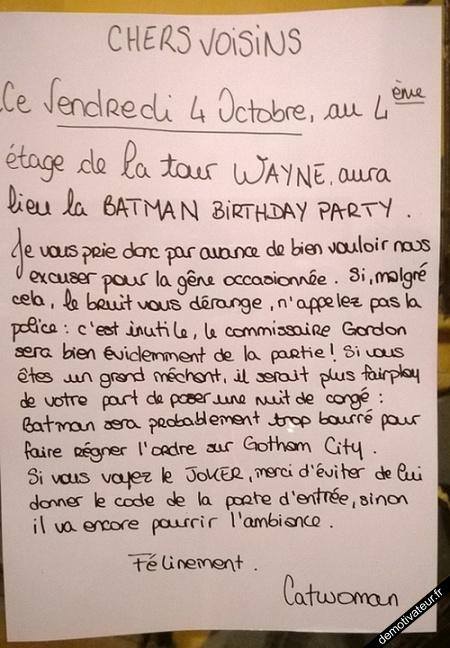 CHERS VOISINS
Ce Vendredi 4 Octobre, au 4ème
étage de la tour WAYNE, aura
lieu la BATMAN BiRTHDAY PARTY.
Je vous prie donc par avance de bien vouloir nous
excuser pour la gêne occasionnée. Si, malgré
cela, le bruit vous dérange, n'appelez pas la
police : c'est inutile, le commissaire Gordon
sera bien évidemment de la partie ! Si vous
êtes un grand méchant, il serait plus fairplay
de votre part de poser une nuit de congé :
Batman sera probablement trop bourré pour
faire régner l'ordre sur Gotham City.
Si vous voyez le JOKER, merci d'éviter de lui
donner le code de la porte d'entrée, sinon
il va encore pourrir l'ambiance.
Félinement.
Catwoman
demotivateur.fr